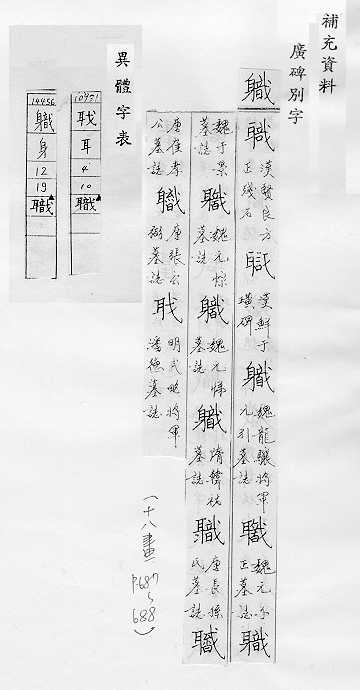 補充資料
廣碑別字
職
職 漢賢良方正殘石
職 漢鮮于璜碑
職 魏龍驤將軍元引墓誌
職 魏元
正墓誌
職
墓誌
職 魏元悰墓誌
職 魏元悌墓誌
職 隋韓祐墓誌
職 唐長孫氏墓誌
職
唐崔孝公墓誌
職 唐張公
墓誌
耺 明武略將軍潘德墓誌
(十八畫)
P687~688
異體字表
10451
耺
耳
4
10
職
14456
軄
身
12
19
職